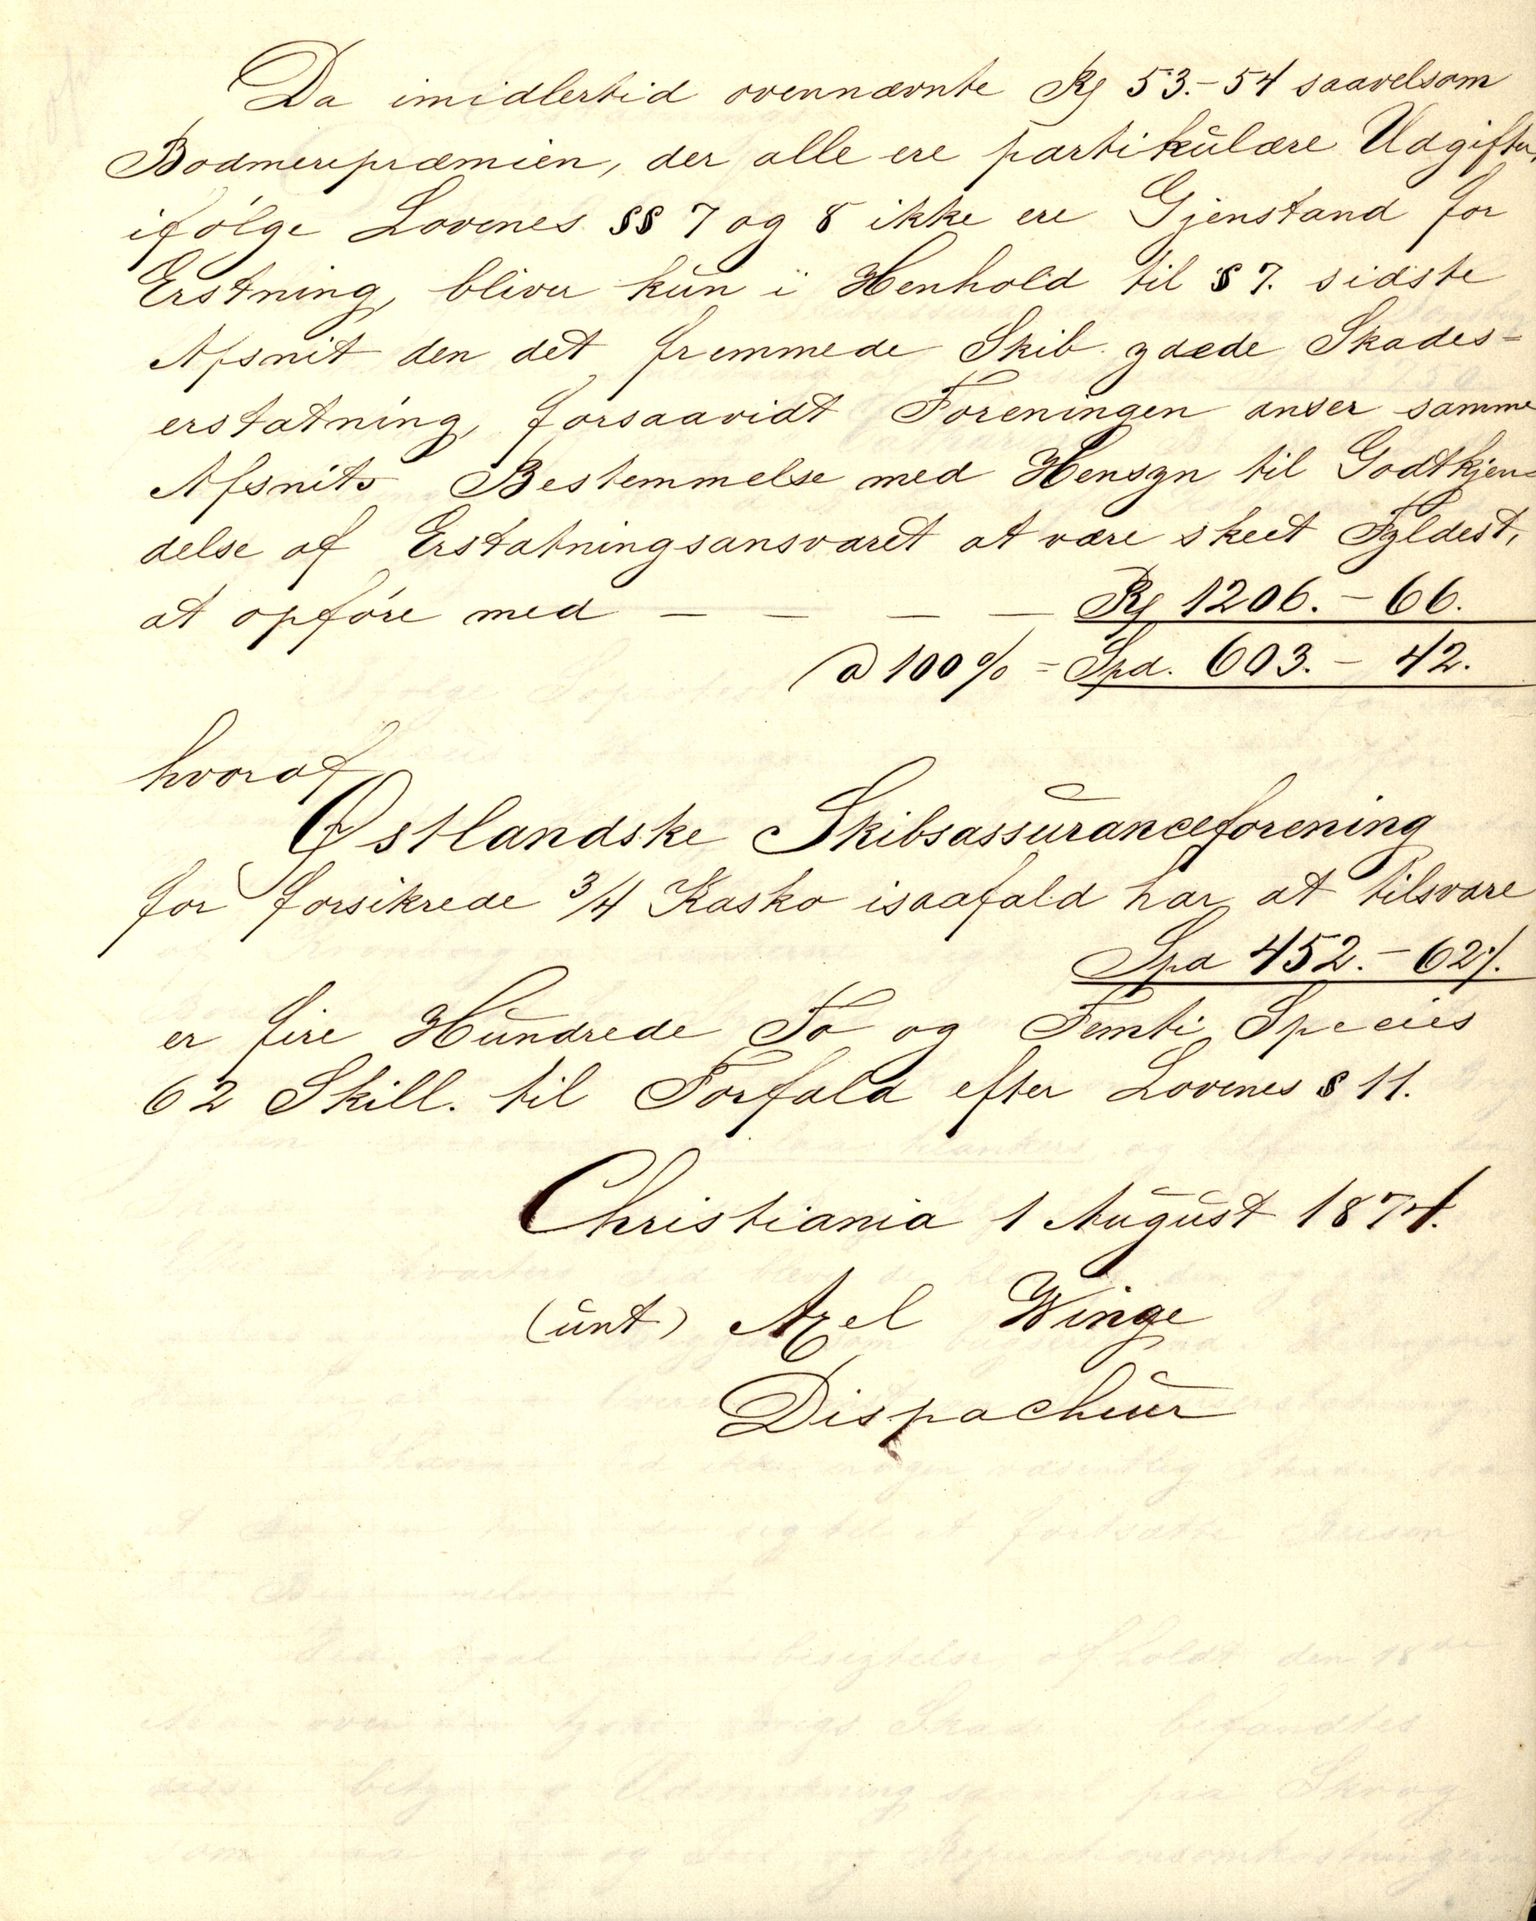 Da imidlertid ovennævnte Rs 53.-54 saavelsom
Bodmeripræmien, der alle ere partikulære Udgifter,
ifølge Lovenes §§ 7 og 8 ikke ere Gjenstand for
Erstning, bliver kun i Henhold til § 7. sidste
Afsnit den det fremmede Skib ydede Skades=
erstatning, forsaavidt Foreningen anser samme
Afsnits Bestemmelse med Hensyn til Godtkjen=
delse af Erstatningsansvaret at være skeet Fyldest,
at opføre med — — — — Rs 1206.-66.
a 100% = Spd. 603.- 42.
hvoraf
Østlandske Skibsassuranceforening
for forsikrede 3/4 Kasko isaafald har at tilsvare
Spd 452.-62/.
er fire Hundrede To og Femti Species
62 Skill. til Forfald efter Lovenes § 11.
Christiania 1 August 1874.
(unt) Axel Winge
Dispacheur